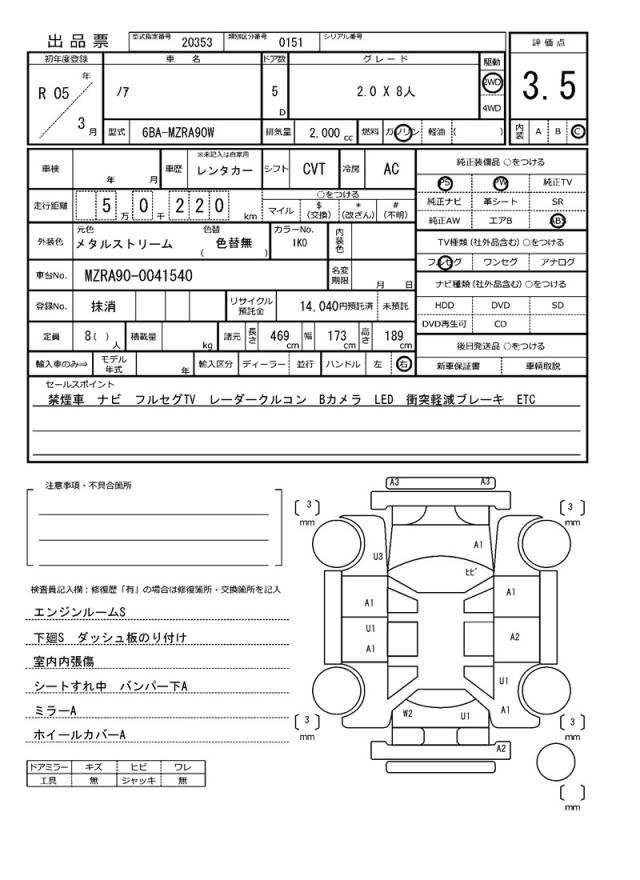 出品票 型式指定番号 20353 類別区分番号 0151 シリアル番号
評価点
3.5
内装 A B C
初年度登録 車名 ドア数 グレード 駆動
R 05 年 3 月 ノア 5 D 2.0 X 8人 2WD 4WD
型式 6BA-MZRA90W 排気量 2,000 cc 燃料 ガソリン 軽油 ( )
車検 年 月 車歴 ※未記入は自家用 レンタカー シフト CVT 冷房 AC
走行距離 5 万 0 千 2 2 0 km
○をつける
マイル $(交換) *(改ざん) #(不明)
外装色 元色 メタルストリーム 色替 ( 色替無 ) カラーNo. 1K0 内装色
車台No. MZRA90-0041540 名変期限 月 日
登録No. 抹消 リサイクル預託金 14,040円預託済 未預託
定員 8( )人 積載量 kg 諸元 長さ 469 cm 幅 173 cm 高さ 189 cm
輸入車のみ⇒ モデル年式 年 輸入区分 ディーラー 並行 ハンドル 左 右
純正装備品 ○をつける
PS PW 純正TV
純正ナビ 革シート SR
純正AW エアB ABS
TV種類 (社外品含む) ○をつける
フルセグ ワンセグ アナログ
ナビ種類 (社外品含む) ○をつける
HDD DVD SD
DVD再生可 CD
後日発送品 ○をつける
新車保証書 車輌取説
セールスポイント
禁煙車 ナビ フルセグTV レーダークルコン Bカメラ LED 衝突軽減ブレーキ ETC
注意事項・不具合箇所
検査員記入欄：修復歴「有」の場合は修復箇所・交換箇所を記入
エンジンルームS
下廻S ダッシュ板のり付け
室内内張傷
シートすれ中 バンパー下A
ミラーA
ホイールカバーA
ドアミラー キズ ヒビ ワレ
工具 無 ジャッキ 無
A3 A3
[ 3 ] mm [ 3 ] mm
A1
U3
ヒビ
A1 A1
U1
A1 A2
U1
W2 U1 A1
[ 3 ] mm [ 3 ] mm
A2
[ ] mm